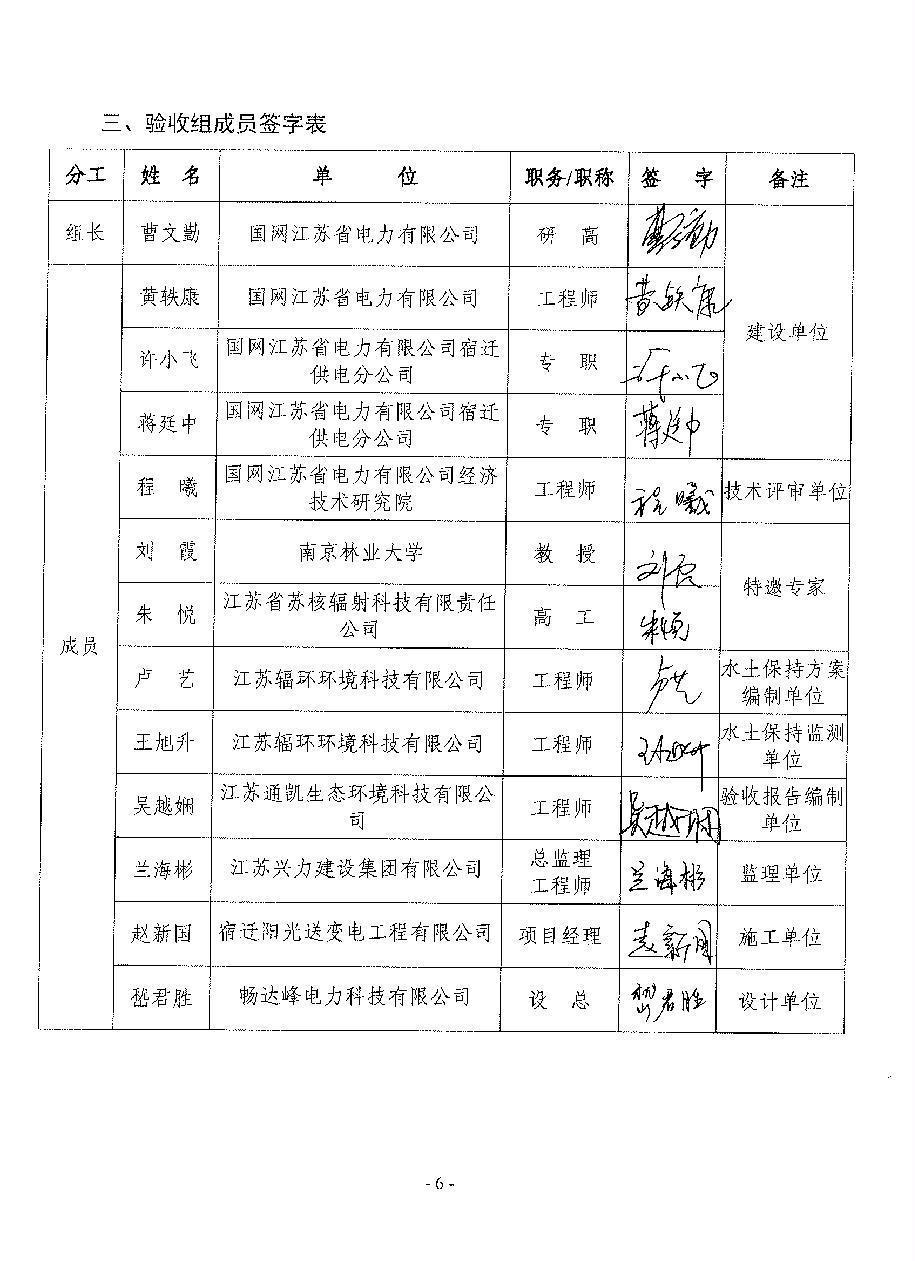 三、验收组成员签字表
分工 姓 名 单 位 职务/职称 签 字 备注
组长 曹文勤 国网江苏省电力有限公司 研 高 曹文勤
黄轶康 国网江苏省电力有限公司 工程师 黄轶康
建设单位
许小飞 国网江苏省电力有限公司宿迁
供电分公司 专 职 许小飞
蒋廷中 国网江苏省电力有限公司宿迁
供电分公司 专 职 蒋廷中
程 曦 国网江苏省电力有限公司经济
技术研究院 工程师 程曦 技术评审单位
刘 霞 南京林业大学 教 授 刘霞
特邀专家
朱 悦 江苏省苏核辐射科技有限责任
公司 高 工 朱悦
成员
卢 艺 江苏辐环环境科技有限公司 工程师 卢艺 水土保持方案
编制单位
王旭升 江苏辐环环境科技有限公司 工程师 王旭升 水土保持监测
单位
吴越娴 江苏通凯生态环境科技有限公
司 工程师 吴越娴 验收报告编制
单位
兰海彬 江苏兴力建设集团有限公司 总监理
工程师 兰海彬 监理单位
赵新国 宿迁阳光送变电工程有限公司 项目经理 赵新国 施工单位
嵇君胜 畅达峰电力科技有限公司 设 总 嵇君胜 设计单位
- 6 -